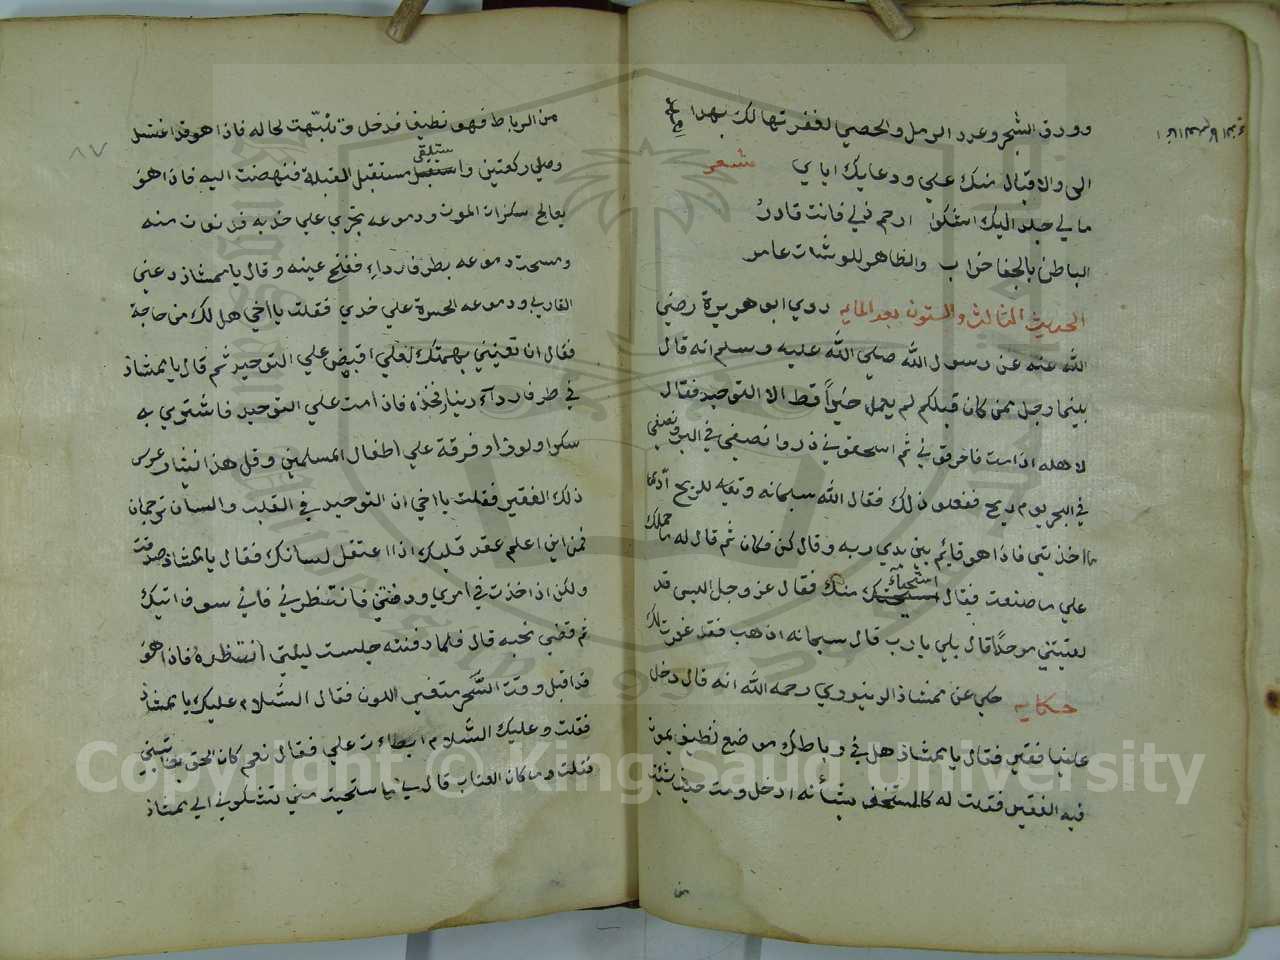 وورق الشجر وعدد الرمل والحصي لغفرتها لك بهذا
الى والاقبال منك علي ودعايك اياي شعر
مالي جلد اليك اشكوا ارحم ذلي فانت قادر
الباطن بالجفا خراب والظاهر للوشات عامر
الحديث الثالث والستون بعد المايه روي ابو هريرة رضي
الله عنه عن رسول الله صلي الله عليه وسلم انه قال
بينما رجل ممن كان قبلكم لم يعمل خيراً قط الا التوحيد فقال
لاهله اذا مت فاحرقوني ثم اسحقوني ثم ذروا نصفي في البر ونصفي
في البحر يوم ريح ففعلوا ذلك فقال الله سبحانه وتعالى للريح أدي
ما اخذتي فاذا هو قايم بين يدي ربه وقال كن فكان ثم قال له ما حملك
علي ما صنعت فقال استحيائ منك فقال عز وجل اليس قد
لقيتني موحداً قال بلي يا رب قال سبحانه اذهب فقد غفرت لك
حكايه حكي عن ممشاذ الدينوري رحمه الله انه قال دخل
علينا فقير فقال يا ممشاذ هل في رباطك موضع نظيف يموت
فيه الفقير فقلت له كالمستخف بشأنه ادخل ومت حيث شئت
من
من الرباط فهو نظيف فدخل وتنبهت لحاله فاذا هو قد اغتسل
وصلي ركعتين واستلقي مستقبل القبلة فنهضت اليه فاذا هو
يعالج سكرات الموت ودموعه تجري علي خديه فدنوت منه
ومسحت دموعه بطرف رداء ففتح عينه وقال يا ممشاذ دعني
القا ربي ودموعه الحسرة علي خدي فقلت يا اخي هل لك من حاجة
فقال ان تعينني بهمتك لعلي اقبض علي التوحيد ثم قال يا ممشاذ
في طرف ردآء دينار تخذه فاذا مت علي التوحيد فاشتري به
سكرا ولوزا وفرقة علي اطفال المسلمين وقل هذا نثار عرس
ذلك الفقير فقلت يا اخي ان التوحيد في القلب والسان ترجمان
فمن اين اعلم عقد قلبك اذا اعتقل لسانك فقال يا ممشاذ صدقت
ولكن اذا خذت في امري ودفنتني فانتظرني فاني سوف اتيك
ثم قضي نحبه قال فلما دفنته جلست ليلتي أنتظره فاذا هو
قد اقبل وقت السَّحَر متغير اللون فقال السلام عليك يا ممشاذ
فقلت وعليك السلام ابطاءت علي فقال نعم كان الحق يعاتبني
فقلت وما كان العتاب قال لي ما استحيت مني تشكوني الي ممشاذ
٨٧
Copyright © King Saud University